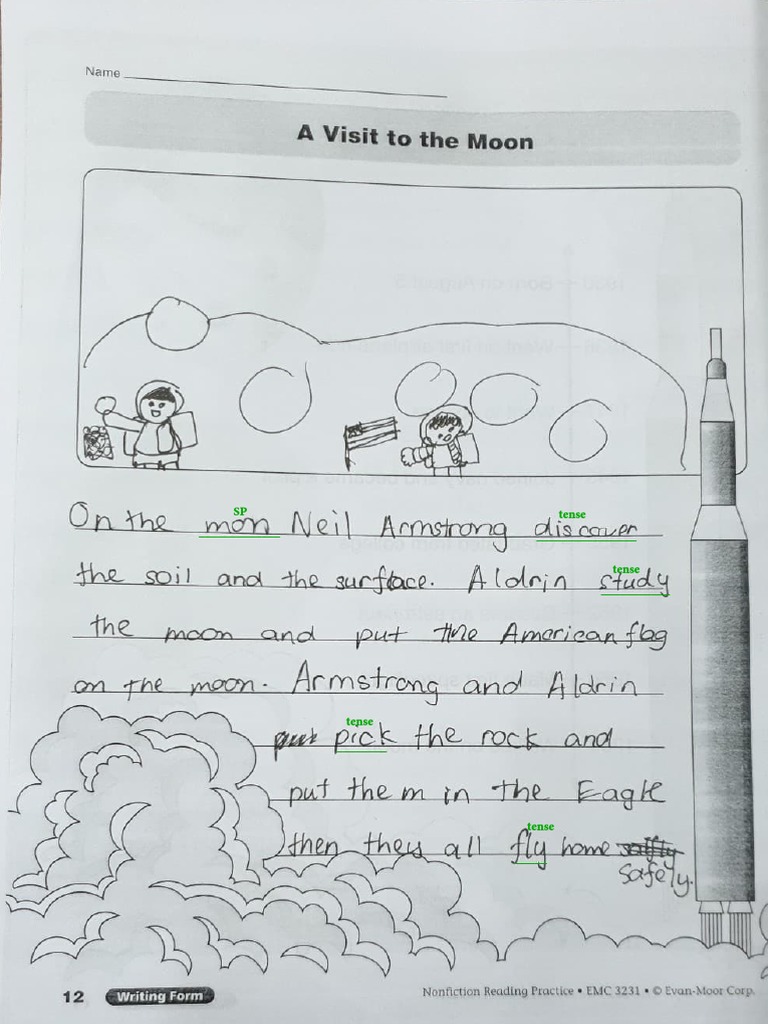 Name
A Visit to the Moon
SP tense
On the mon Neil Armstrong discover
tense
the soil and the surface. Aldrin study
the moon and put the American flag
on the moon. Armstrong and Aldrin
tense
put pick the rock and
put them in the Eagle
tense
then they all fly home
safely.
12 Writing Form Nonfiction Reading Practice • EMC 3231 • © Evan-Moor Corp.